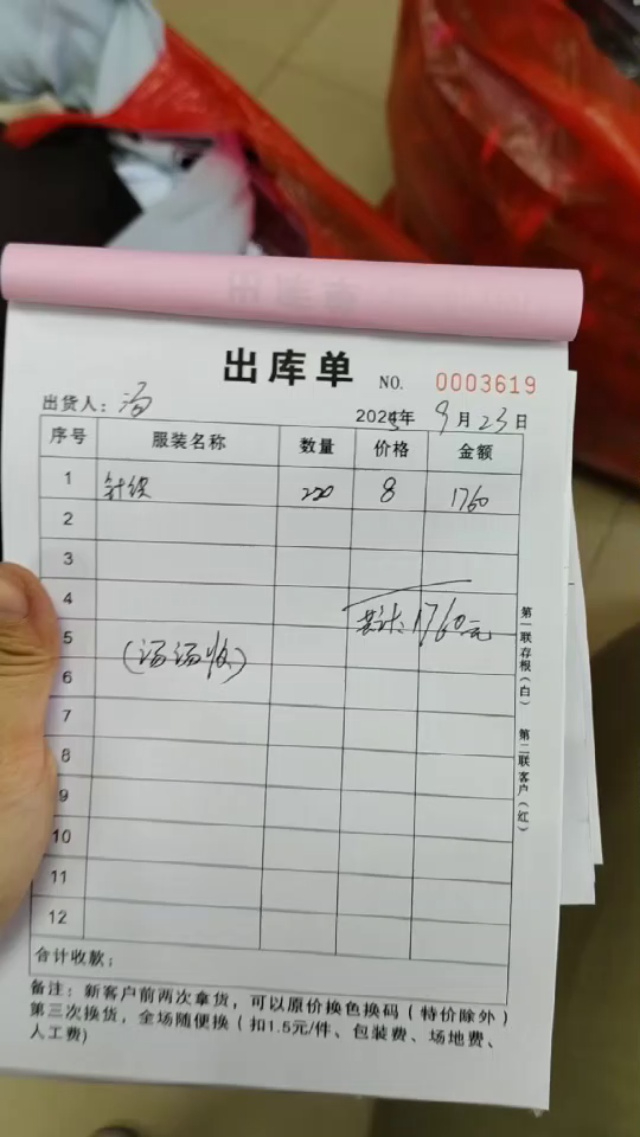 出库单 NO. 0003619
出货人：汤 2025年9月23日
序号 服装名称 数量 价格 金额
1 针织 220 8 1760
2
3
4
共计：1760元
5
(汤汤收)
6
7
8
9
10
11
12
合计收款：
备注：新客户前两次拿货，可以原价换色换码（特价除外）
第三次换货，全场随便换（扣1.5元/件、包装费、场地费、
人工费)
第一联存根（白） 第二联客户（红）